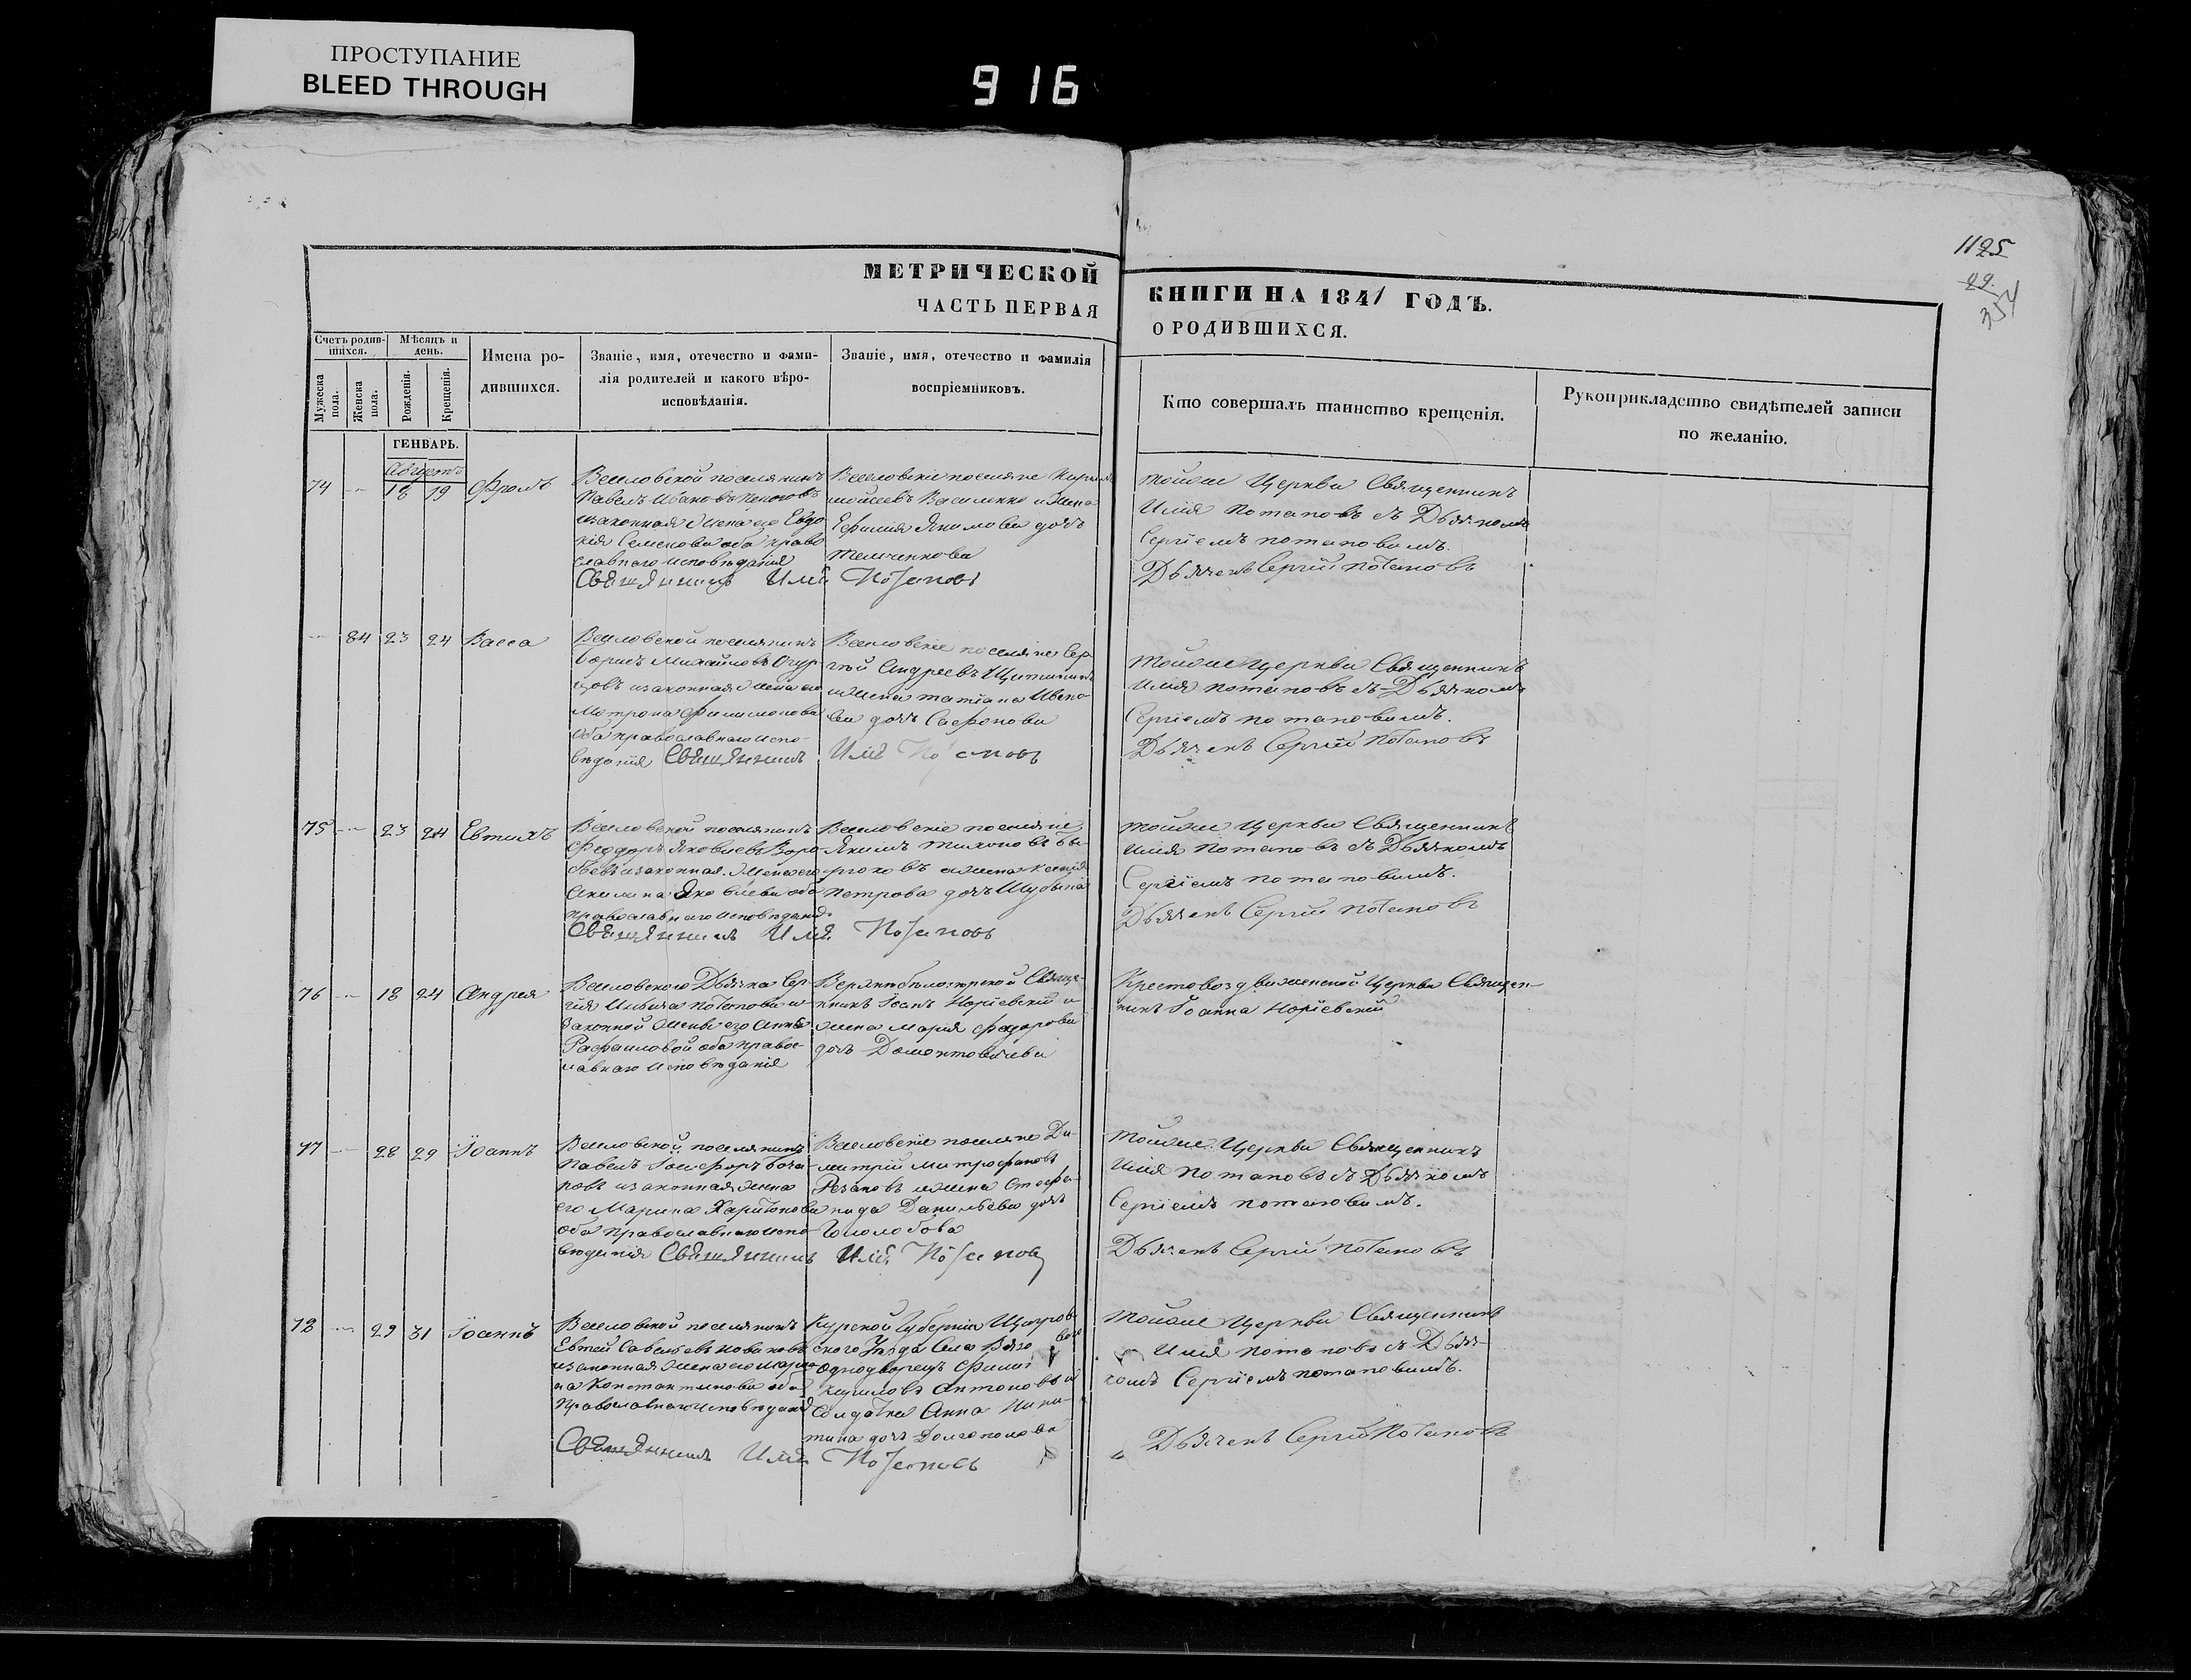 ПРОСТУПАНИЕ
BLEED THROUGH
916
1125
29.
354
МЕТРИЧЕСКОЙ
ЧАСТЬ ПЕРВАЯ
КНИГИ НА 1841 ГОДЪ.
О РОДИВШИХСЯ.
Счетъ родив-
шихся.
Мѣсяцъ и
день.
Мужеска
пола.
Женска
пола.
Рожденія.
Крещенія.
Имена ро-
дившихся.
Званіе, имя, отечество и фами-
лія родителей и какого вѣро-
исповѣданія.
Званіе, имя, отечество и фамилія
воспріемниковъ.
Кто совершалъ таинство крещенія.
Рукоприкладство свидѣтелей записи
по желанію.
ГЕНВАРЬ.
Августъ
74 18 19 Фролъ
Веселовской поселянинъ
Павелъ Ивановъ
изаконная жена его Евдо
кія Семенова оба право
славнаго исповѣданія
Веселовскіе поселяне
Василенко и жена
Ефимія Якимова дочь
Тойже Церкви Священникъ
Илія Потаповъ съ Дьячкомъ
Сергіемъ Потаповымъ.
Дьячекъ Сергій Потаповъ
Священникъ Илія Потаповъ
84 23 24 Васса
Веселовской поселянинъ
Борисъ Михайловъ Огур-
цовъ изаконная жена его
Матрона Филимонова
оба православнаго испо-
вѣданія Священникъ
Веселовскіе поселяне Сер
гѣй Андреевъ
ижена татіана Ивано-
ва дочь Сафонова
Илія Потаповъ
Тойже Церкви Священникъ
Илія Потаповъ съ Дьячкомъ
Сергіемъ Потаповымъ.
Дьячекъ Сергій Потаповъ
75 23 24 Евтихъ
Веселовской поселянинъ
Феодоръ Яковлевъ Воро-
бьевъ изаконная жена его
Акилина Яковлева оба
православнаго исповѣданія
Веселовскіе поселяне
Якимъ Тихоновъ
ижена Ксенія
Петрова дочь Шубина
Священникъ Илія Потаповъ
Тойже Церкви Священникъ
Илія Потаповъ съ Дьячкомъ
Сергіемъ Потаповымъ.
Дьячекъ Сергій Потаповъ
76 18 24 Андрея
Веселовскаго Дьячка Сер-
гія Ильича Потапова и
законной жены его Анны
Рафаиловой оба правос-
лавнаго исповѣданія
Священ-
никъ Іоанъ и
жена Марія Федорова
дочь Домонтовичева
Крестовоздвиженской Церкви Священ-
никъ Іоанна
77 28 29 Іоаннъ
Веселовской поселянинъ
Павелъ
изаконная жена
его Марина Харитонова
оба православнаго испо-
вѣданія Священникъ
Веселовскіе поселяне Ди-
митрій Митрофановъ
Резановъ ижена Стефа-
нида Данильева дочь
Гололобова
Илія Потаповъ
Тойже Церкви Священникъ
Илія Потаповъ съ Дьячкомъ
Сергіемъ Потаповымъ.
Дьячекъ Сергій Потаповъ
78 29 31 Іоаннъ
Веселовской поселянинъ
Евтей Савельевъ Новиковъ
изаконная жена его Мари
на Константинова оба
православнаго исповѣданія
Курской Губерніи Щигров-
скаго Уѣзда Села
Однодворецъ Филиппъ
Кириловъ Антоновъ и
Солдатка Анна Ники-
тина дочь Долгополова
Священникъ Илія Потаповъ
Тойже Церкви Священникъ
Илія Потаповъ съ Дьяч-
комъ Сергіемъ Потаповымъ.
Дьячекъ Сергій Потаповъ